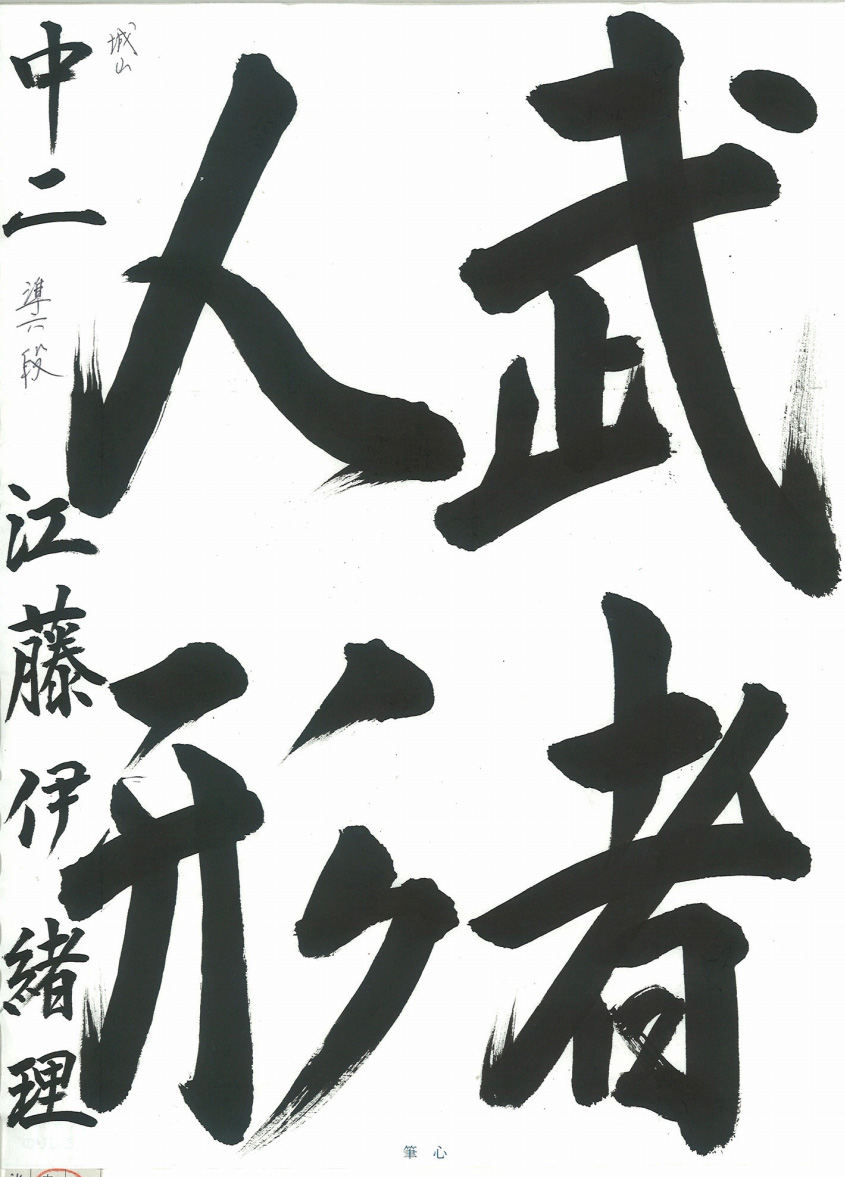 武者
人形
城山
中二 準六段 江藤伊緒理
筆心